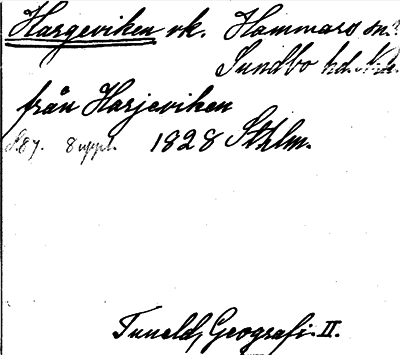 Hargeviken vk. Hammars sn.
Sundbo hd. Nke.
från Harjeviken
S. 87. 8 uppl. 1828 Sthlm.
Tuneld, Geografi II.